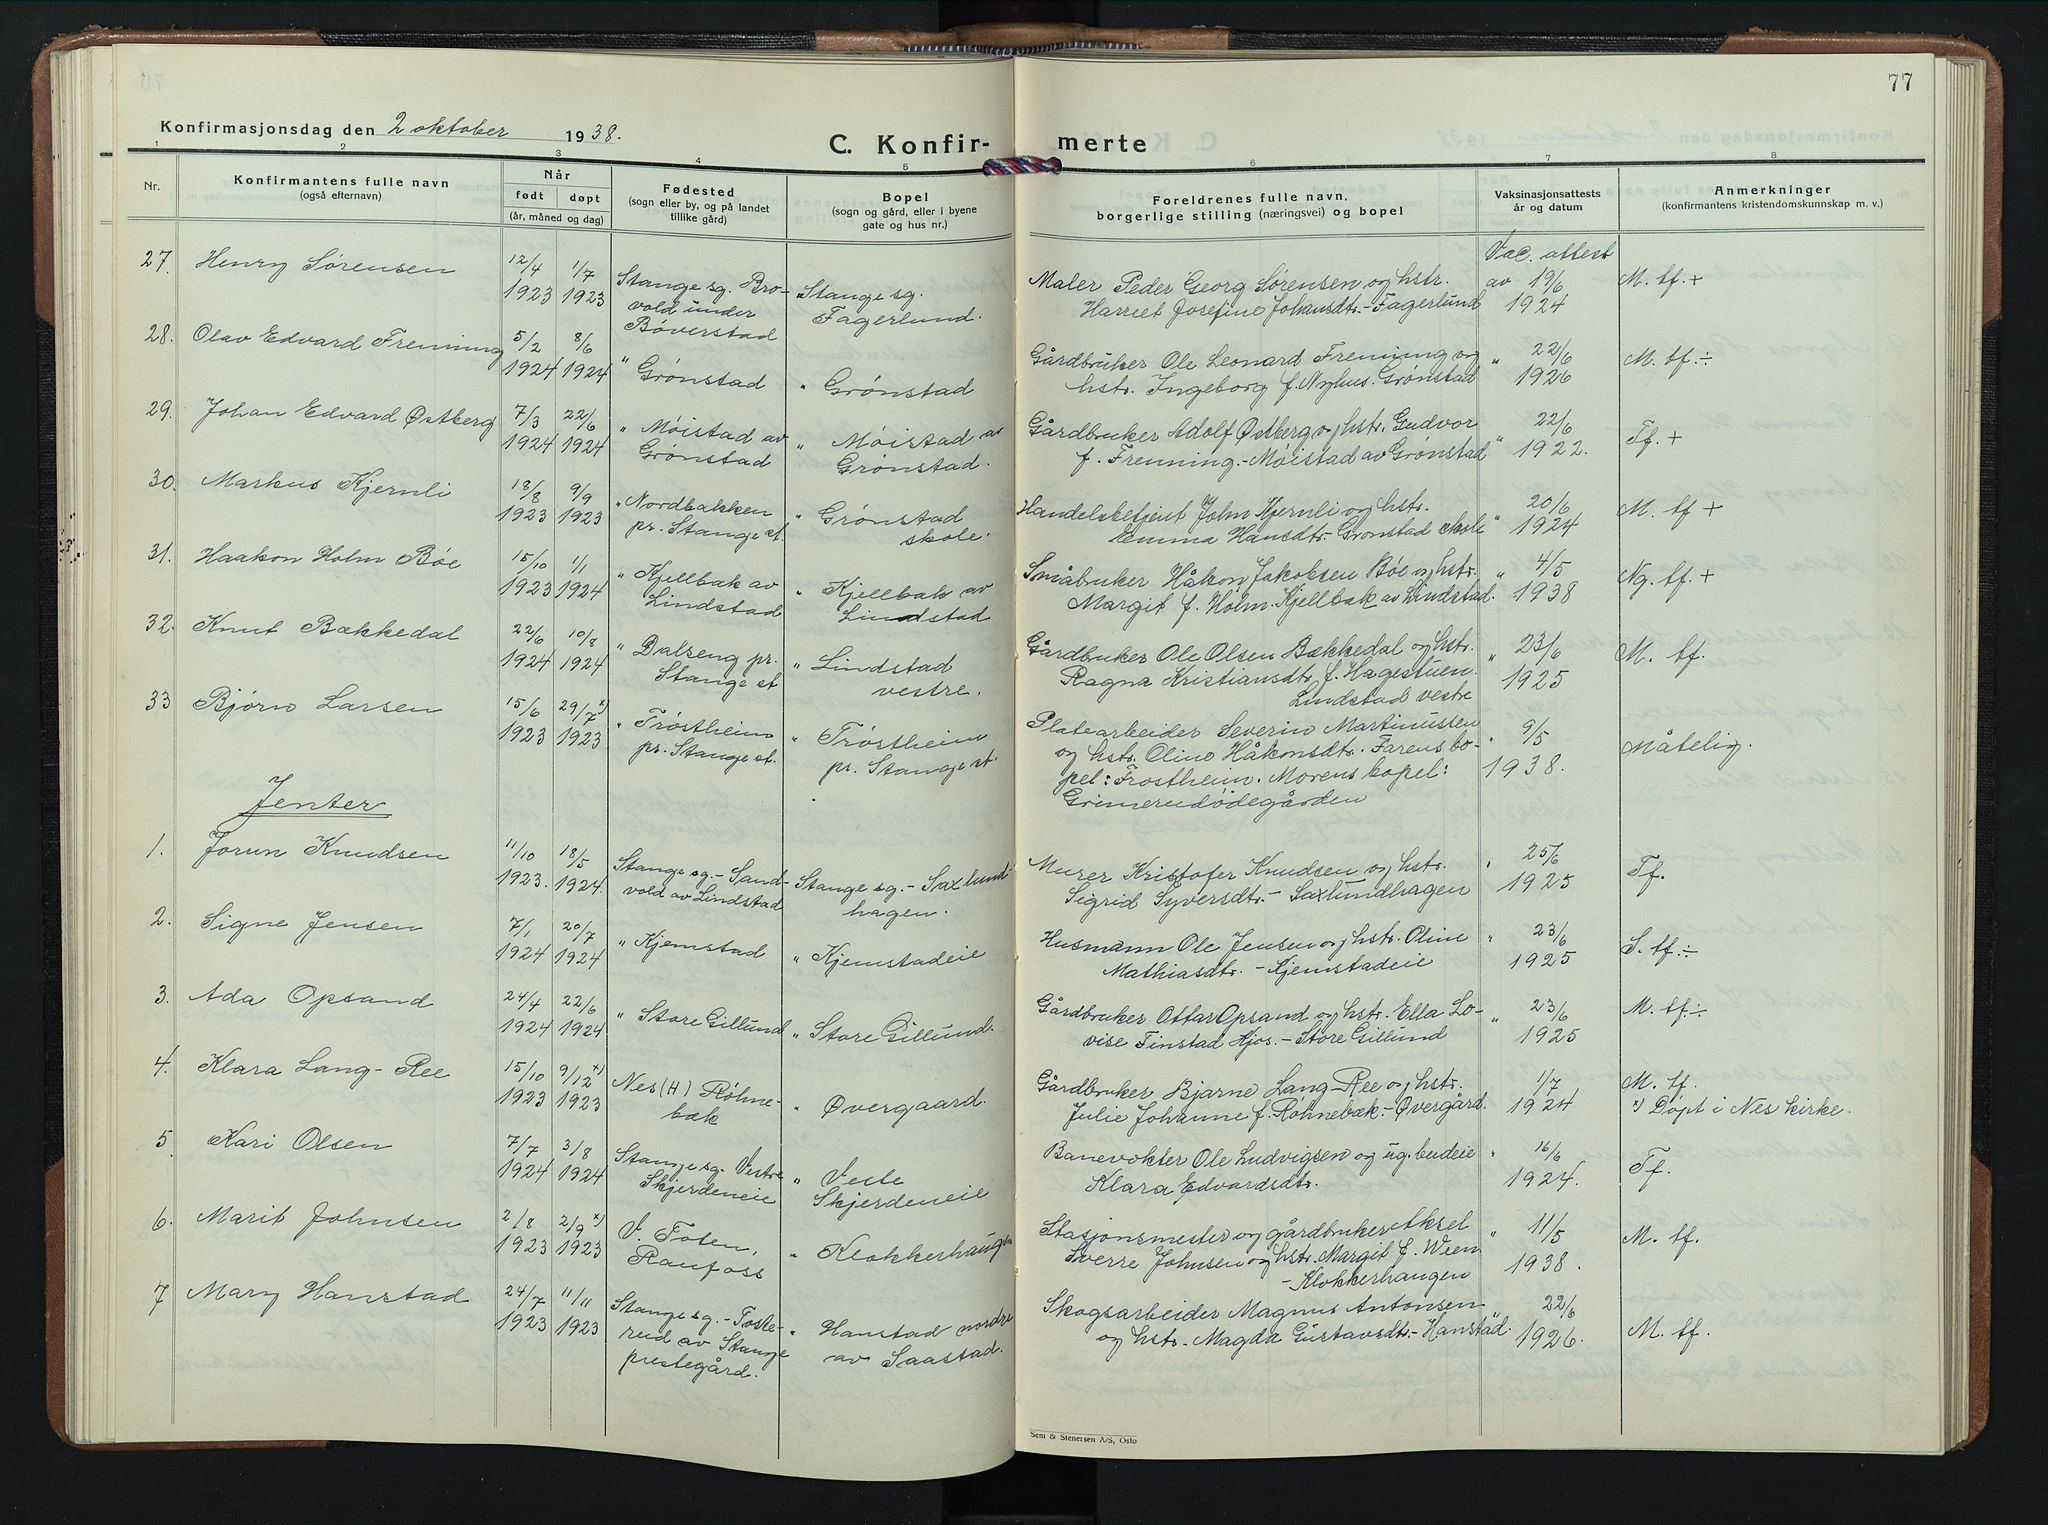 77
Konfirmasjonsdag den 2 oktober 1938.
C. Konfir- merte
1 2 3 4 5 6 7 8
Nr.
Konfirmantens fulle navn
(også efternavn)
Når
født døpt
(år, måned og dag)
Fødested
(sogn eller by, og på landet
tillike gård)
Bopel
(sogn og gård, eller i byene
gate og hus nr.)
Foreldrenes fulle navn,
borgerlige stilling (næringsvei) og bopel
Vaksinasjonsattests
år og datum
Anmerkninger
(konfirmantens kristendomskunnskap m. v.)
27. Henry Sørensen
12/4 1923
1/7 1923
Stange sg. Bro-
vold under
Bøverstad
Stange sg.
Fagerlund.
Maler Peder Georg Sørensen og hstr.
Harriet Josefine Johansdtr. - Fagerlund
Vac. attest
av 19/6
1924
M. tf. +
28. Olav Edvard Frenning
5/2 1924
8/6 1924
" Grønstad
" Grønstad
Gårdbruker Ole Leonard Frenning og
hstr. Ingeborg f. Nyhus. Grønstad
" 22/6
1926
M. tf. ÷
29. Johan Edvard Østberg
7/3 1924
22/6 1924
" Møistad av
Grønstad
" Møistad av
Grønstad.
Gårdbruker Adolf Østberg og hstr. Gudvor
f. Frenning. - Møistad av Grønstad
" 22/6
1922.
Tf. +
30. Markus Kjernli
18/8 1923
9/9 1923
" Nordbakken
pr. Stange st.
" Grønstad
skole.
Handelsbetjent John Kjernli og hstr.
Emma Hansdtr. Grønstad skole
" 20/6
1924
M. tf +
31. Haakon Holm Bøe
15/10 1923
1/1 1924
" Kjellbak av
Lindstad
" Kjellbak av
Lindstad
Småbruker Håkon Jakobsen Bøe og hstr.
Margit f. Holm. Kjellbak av Lindstad.
" 4/5
1938
Ng. tf. +
32. Knut Bækkedal
22/6 1924
10/8 1924
" Dalseng pr.
Stange st
" Lindstad
vestre.
Gårdbruker Ole Olsen Bækkedal og hstr.
Ragna Kristiansdtr. f. Hagestuen.
Lindstad vestre
" 23/6
1925
M. tf.
33 Bjørn Larsen
15/6 1923
29/7 x) 1923
" Trøstheim
pr. Stange st.
" Trøstheim
pr. Stange st.
Platearbeider Severin Martinussen
og hstr. Oline Håkonsdtr. Farens bo-
pel: Trostheim. Morens bopel:
Grimerudødegården
" 9/5
1938.
Måtelig.
Jenter
1. Jorun Knudsen
11/10 1923.
18/5 1924.
Stange sg. - Sand-
vold av Lindstad
Stange sg. - Saxlund-
hagen.
Murer Kristofer Knudsen og hstr.
Sigrid Syversdtr. - Saxlundhagen
" 25/6
1925
Tf.
2. Signe Jensen
7/1 1924
20/7 1924
" Kjemstad
" Kjemstadeie
Husmann Ole Jensen og hstr. Oline
Mathiasdtr. - Kjemstadeie
" 23/6
1925
S. tf. ÷
3. Ada Opsand
24/4 1924
22/6 1924
" Store Gillund
" Store Gillund.
Gårdbruker Ottar Opsand og hstr. Ella Lo-
vise Finstad Hjos. - Store Gillund
" 23/6
1925
M. tf. ÷
4. Klara Lang-Ree
15/10 1923
9/12 x) 1923
Nes (H) Røhne-
bæk
" Øvergaard.
Gårdbruker Bjarne Lang-Ree og hstr.
Julie Johanne f. Røhnebæk. - Øvergård.
" 1/7
1924
M. tf.
x) Døpt i Nes kirke.
5 Kari Olsen
7/7 1924
3/8 1924
Stange sg. Vestre
Skjerdeneie
" Vestre
Skjerdeneie
Banevokter Ole Ludvigsen og ug. budeie
Klara Edvardsdtr.
" 16/6
1924.
Tf.
6. Marit Johnsen
2/8 1923
2/9 x) 1923
V. Toten,
Raufoss
" Klokkerhaugen
Stasjonsmester og gårdbruker Aksel
Sverre Johnsen og hstr. Margit f. Ween
- Klokkerhaugen
" 11/5
1938.
M. tf.
7 Mary Hanstad
24/7 1923
11/11 1923
Stange sg. - Toske-
rud av Stange
prestegård.
" Hanstad nordre
av Saastad.
Skogsarbeider Magnus Antonsen
og hstr. Magda Gustavsdtr. - Hanstad.
" 22/6
1926.
M. tf.
Sem & Stenersen A/S, Oslo